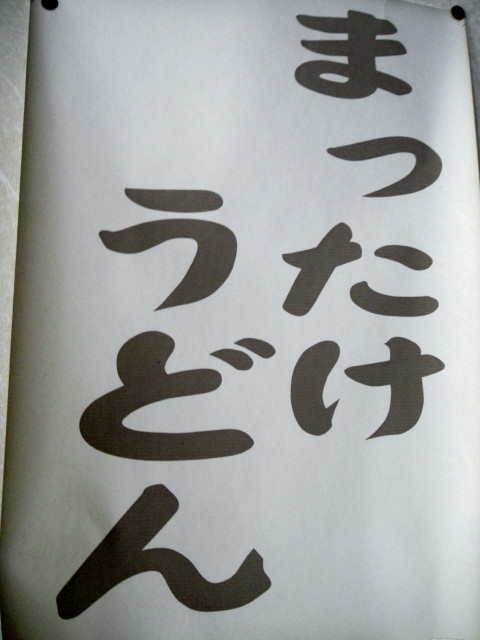 まったけ
うどん